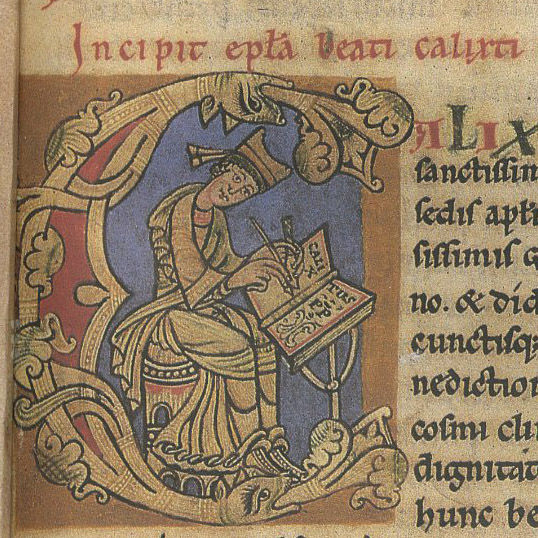 Incipit epl̄a beati calixti
CALIX
sanctissim
sedis apl̄i
sissimis
no. & dic
cunctisq;
nedictio
cosmi clu
dignitat
hunc be